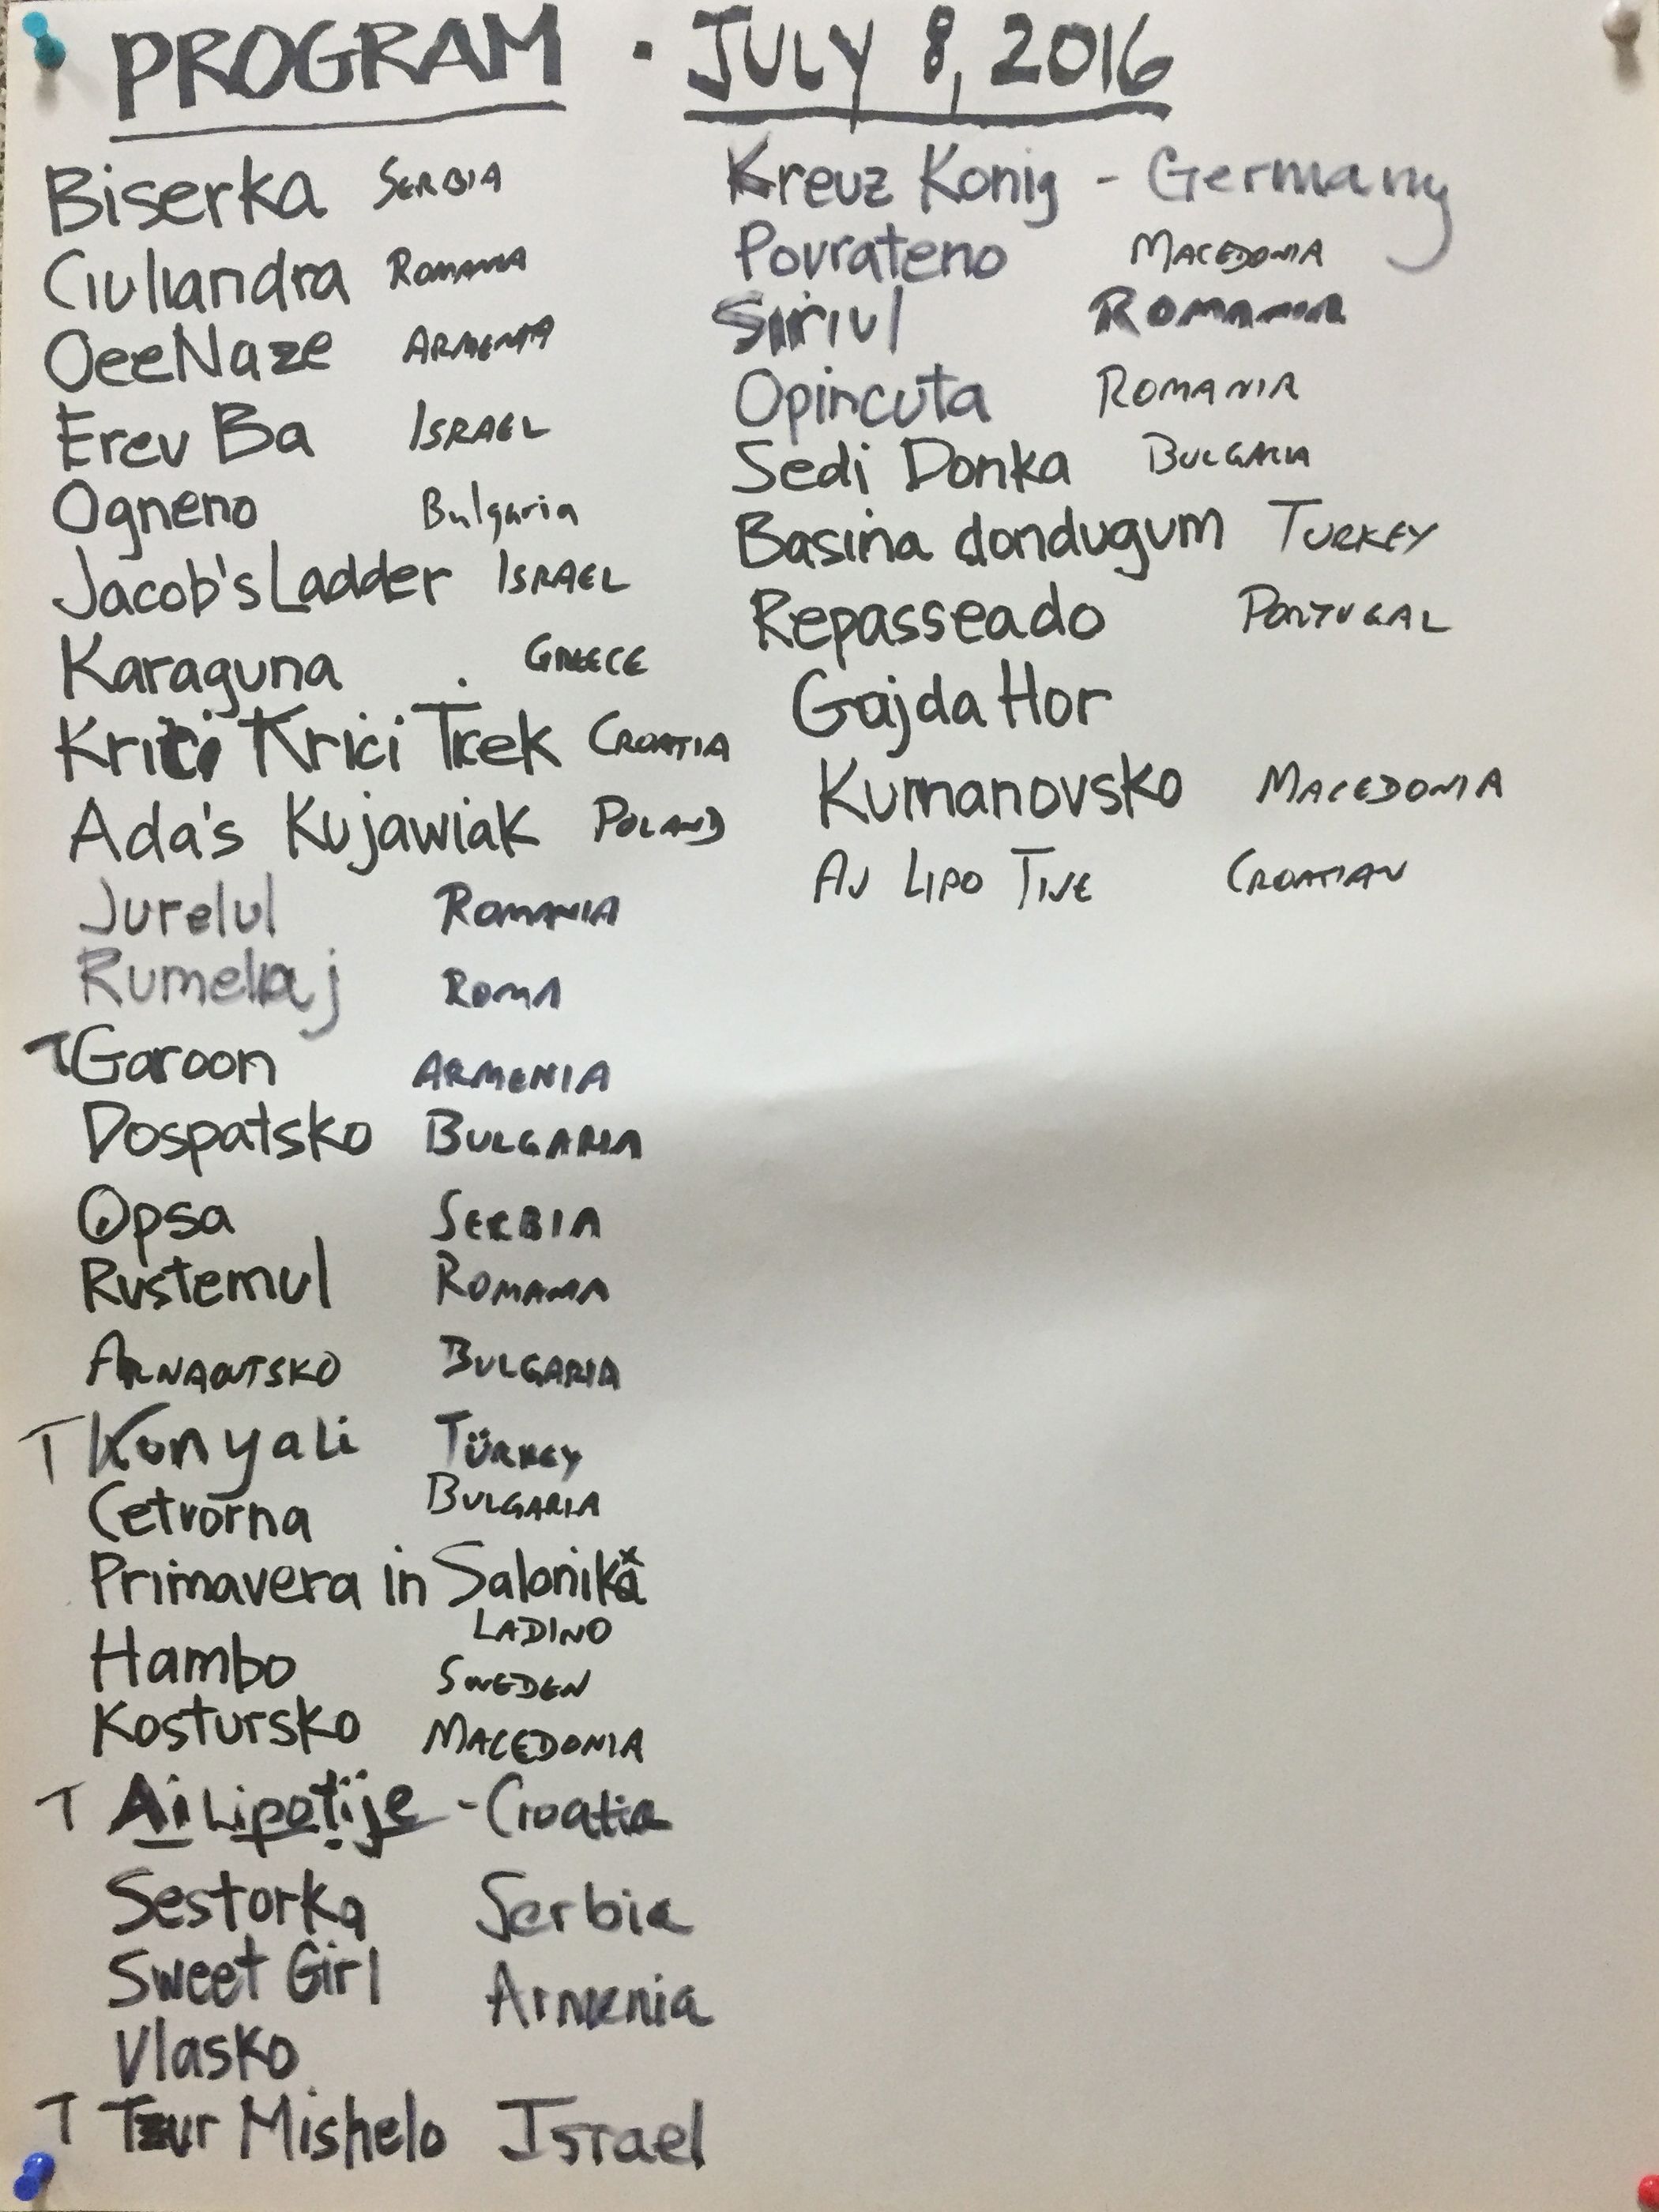 PROGRAM · JULY 8, 2016
Biserka SERBIA
Ciuliandra ROMANIA
OeeNaze ARMENIA
Erev Ba ISRAEL
Ogneno Bulgaria
Jacob's Ladder ISRAEL
Karaguna GREECE
Krici Krici Ticek CROATIA
Ada's Kujawiak POLAND
Jurelul ROMANIA
Rumelaj ROMA
T Garoon ARMENIA
Dospatsko BULGARIA
Opsa SERBIA
Rustemul ROMANIA
ARNAOUTSKO BULGARIA
T Konyali TÜRKEY
Cetvorna BULGARIA
Primavera in Salonika
LADINO
Hambo SWEDEN
Kostursko MACEDONIA
T Ai Lipo tije - Croatia
Sestorka Serbia
Sweet Girl Armenia
Vlasko
T Tzur Mishelo Israel
Kreuz Konig - Germany
Povrateno MACEDONIA
Siriul ROMANIA
Opincuta ROMANIA
Sedi Donka BULGARIA
Basina dondugum TURKEY
Repasseado PORTUGAL
Gajda Hor
Kumanovsko MACEDONIA
AJ LIPO TIJE CROATIAN